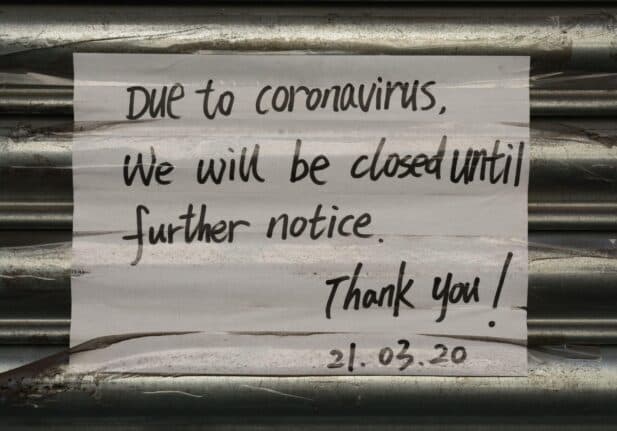 Due to coronavirus,
We will be closed until
further notice.
Thank you!
21.03.20